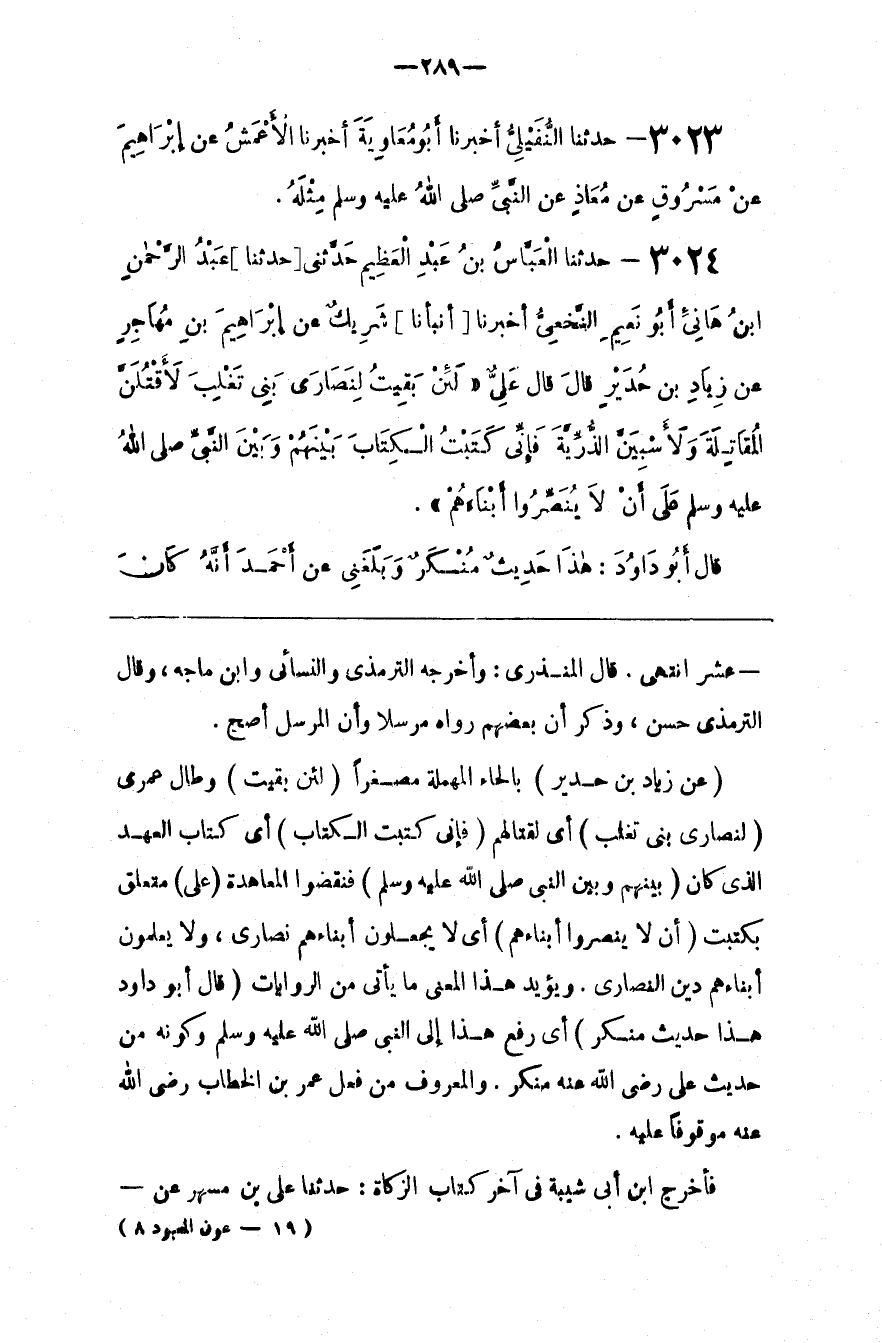 —٢٨٩—
٣٠٢٣— حدثنا النُّفَيْلِيُّ أخبرنا أَبُو مُعَاوِيَةَ أخبرنا الْأَعْمَشُ عن إِبْرَاهِيمَ
عنْ مَسْرُوقٍ عن مُعَاذٍ عن النَّبيِّ صلى اللهُ عليه وسلم مِثْلَهُ.
٣٠٢٤ — حدثنا الْعَبَّاسُ بنُ عَبْدِ الْعَظِيمِ حَدَّثنى [حدثنا] عَبْدُ الرَّحْمٰنِ
ابنُ هَانِئٍ أَبُو نَعِيمٍ النَّخَعِيُّ أخبرنا [أنبأنا] شَرِيكٌ عن إِبْرَاهِيمَ بنِ مُهَاجِرٍ
عن زِيَادِ بن حُدَيْرٍ قالَ قال عَلِيٌّ « لَئِنْ بَقِيتُ لِنَصَارَى بَنِى تَغْلِبَ لَأَقْتُلَنَّ
الْمُقَاتِلَةَ وَلَأَسْبِيَنَّ الذُّرِّيَّةَ فَإِنِّى كَتَبْتُ الْكِتَابَ بَيْنَهُمْ وَبَيْنَ النَّبىِّ صلى اللهُ
عليه وسلم عَلَى أَنْ لَا يُنَصِّرُوا أَبْنَاءَهُمْ » .
قال أَبُو دَاوُدَ : هٰذَا حَدِيثٌ مُنْكَرٌ وَبَلَغَنِى عن أَحْمَدَ أَنَّهُ كَانَ
— عشر انتهى . قال المنذرى : وأخرجه الترمذى والنسائى وابن ماجه ، وقال
الترمذى حسن ، وذكر أن بعضهم رواه مرسلا وأن المرسل أصح .
( عن زياد بن حدير ) بالحاء المهملة مصغراً ( لئن بقيت ) وطال عمرى
( لنصارى بنى تغلب ) أى لقتالهم ( فإنى كتبت الكتاب ) أى كتاب العهد
الذى كان ( بينهم وبين النبى صلى الله عليه وسلم ) فنقضوا المعاهدة ( على ) متعلق
بكتبت ( أن لا ينصروا أبناءهم ) أى لا يجعلون أبناءهم نصارى ، ولا يعلمون
أبناءهم دين النصارى . ويؤيد هذا المعنى ما يأتى من الروايات ( قال أبو داود
هذا حديث منكر ) أى رفع هذا إلى النبى صلى الله عليه وسلم وكونه من
حديث على رضى الله عنه منكر . والمعروف من فعل عمر بن الخطاب رضى الله
عنه موقوفاً عليه .
فأخرج ابن أبى شيبة فى آخر كتاب الزكاة : حدثنا على بن مسهر عن —
( ١٩ — عون المعبود ٨ )